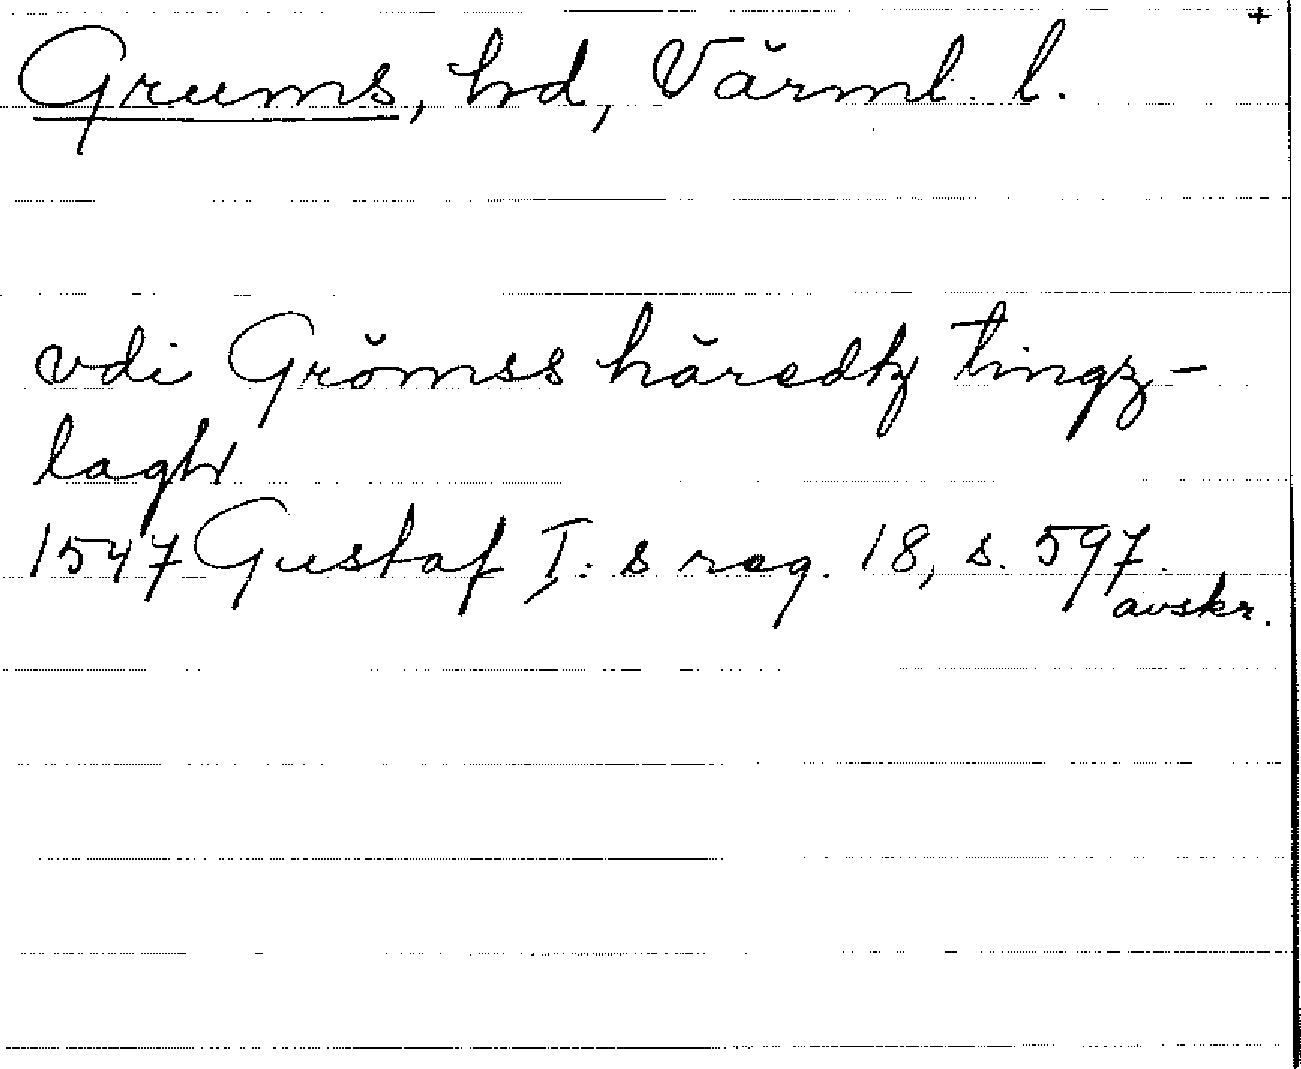 +
Grums, hd, Värml. l.
vdi Grömss häredtz tingz-
lagh
1547 Gustaf I:s reg. 18, s. 597.
avskr.